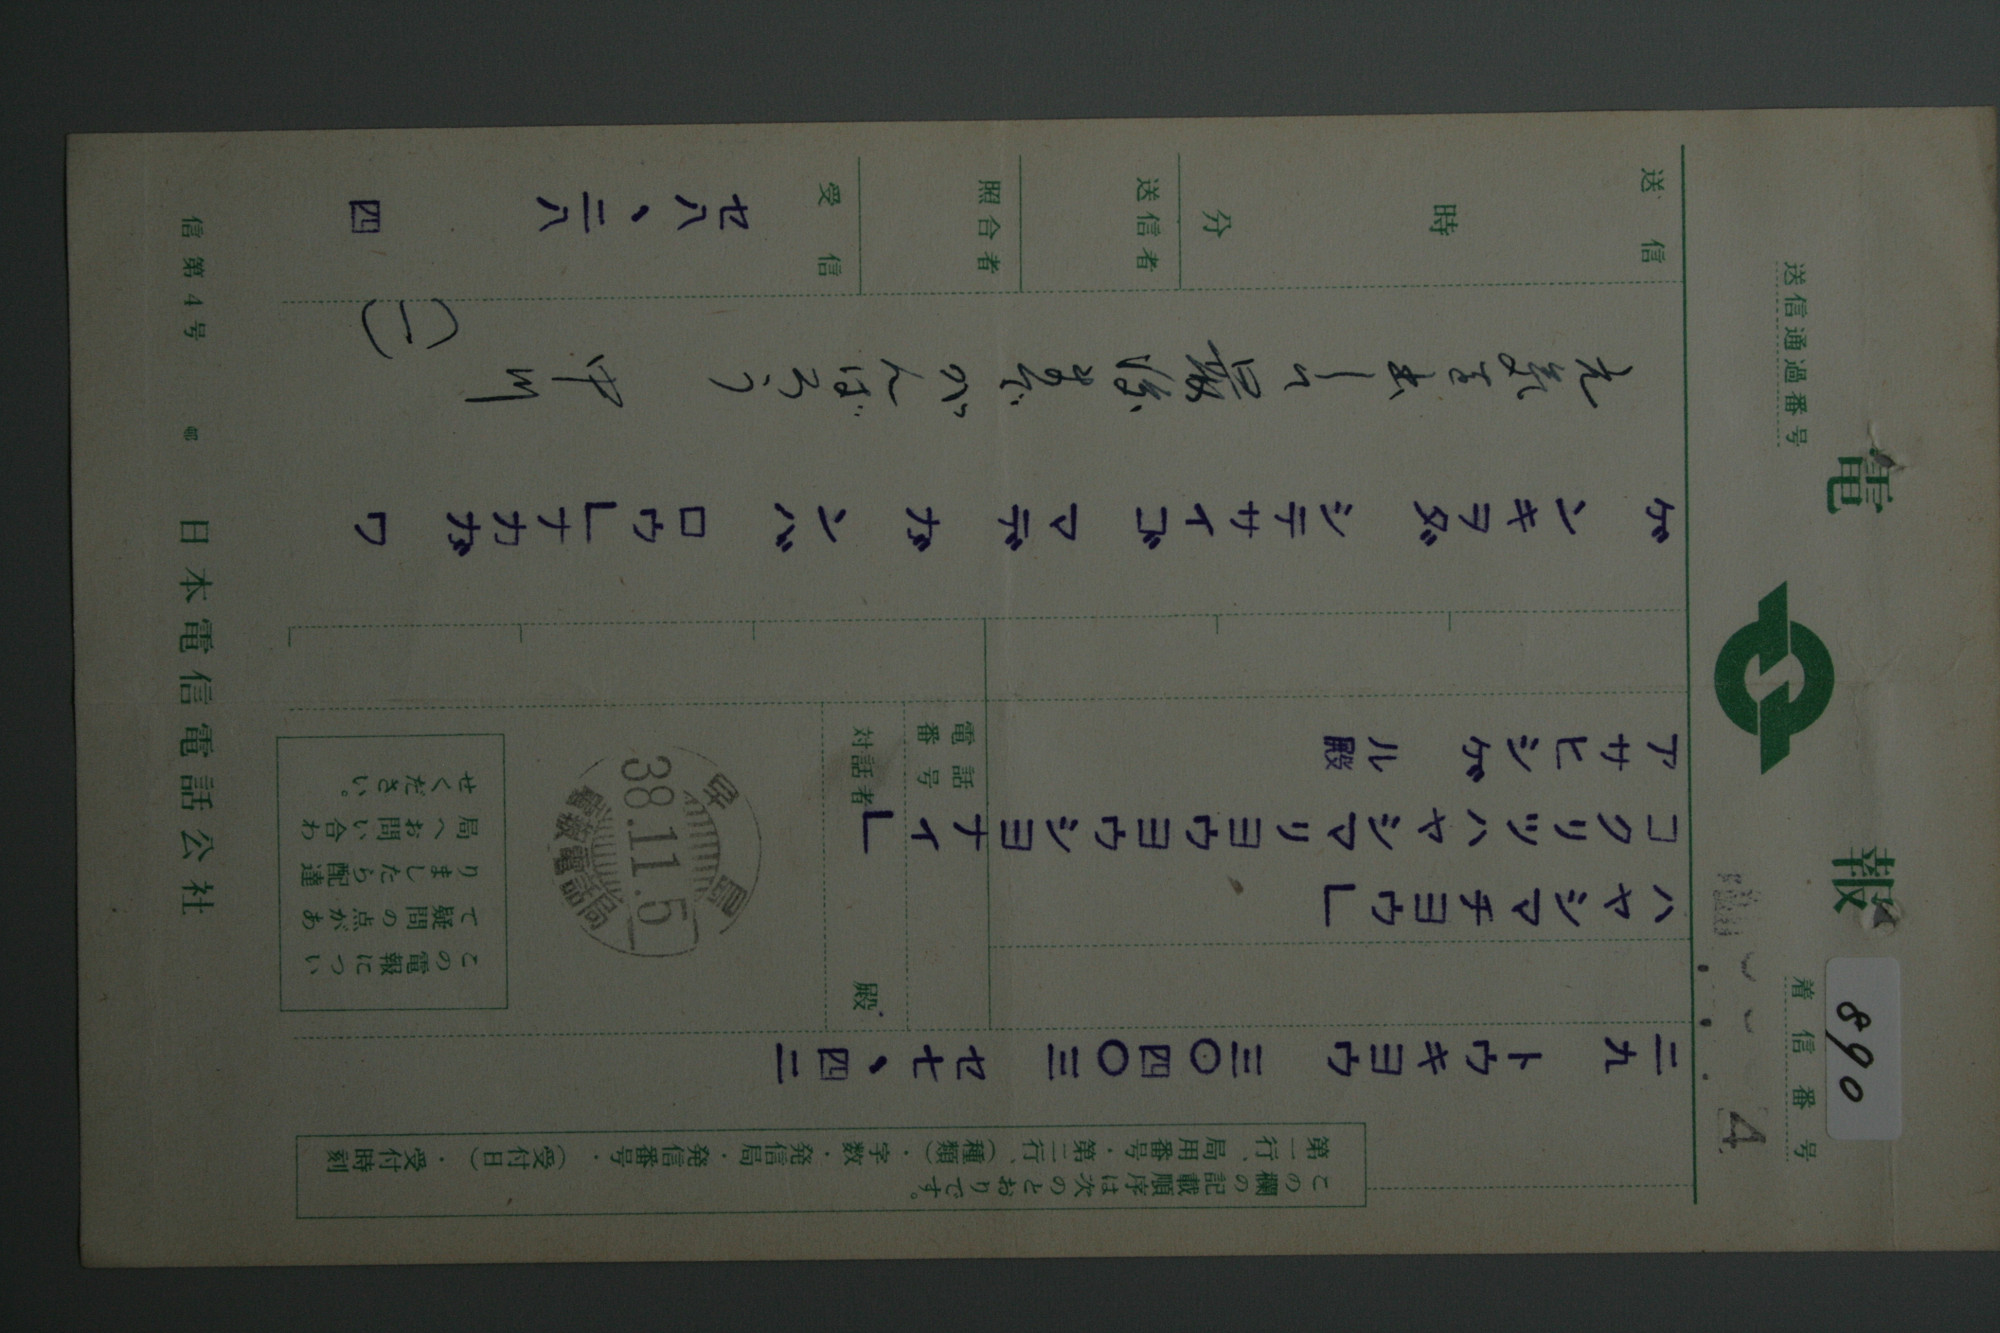 電報
送信通過番号
着信番号
890
4
この欄の記載順序は次のとおりです。
第一行、局用番号・第二行、(種類)・字数・発信局・発信番号・(受付日)・受付時刻
二九 トウキヨウ 三〇四〇三 セ七、四二
ハヤシマチヨウ」
コクリツハヤシマリヨウヨウシヨナイ」
アサヒシゲル殿
電話番号
対話者 殿
38.11.5
この電報について疑問の点がありましたら配達局へお問い合わせください。
ゲンキヲダシテサイゴマデガンバロウ」ナカガワ
元気を出して最後までがんばろう 中川
(一)
送信 時 分
送信者
照合者
受信
セ八、二八
四
信第4号
日本電信電話公社